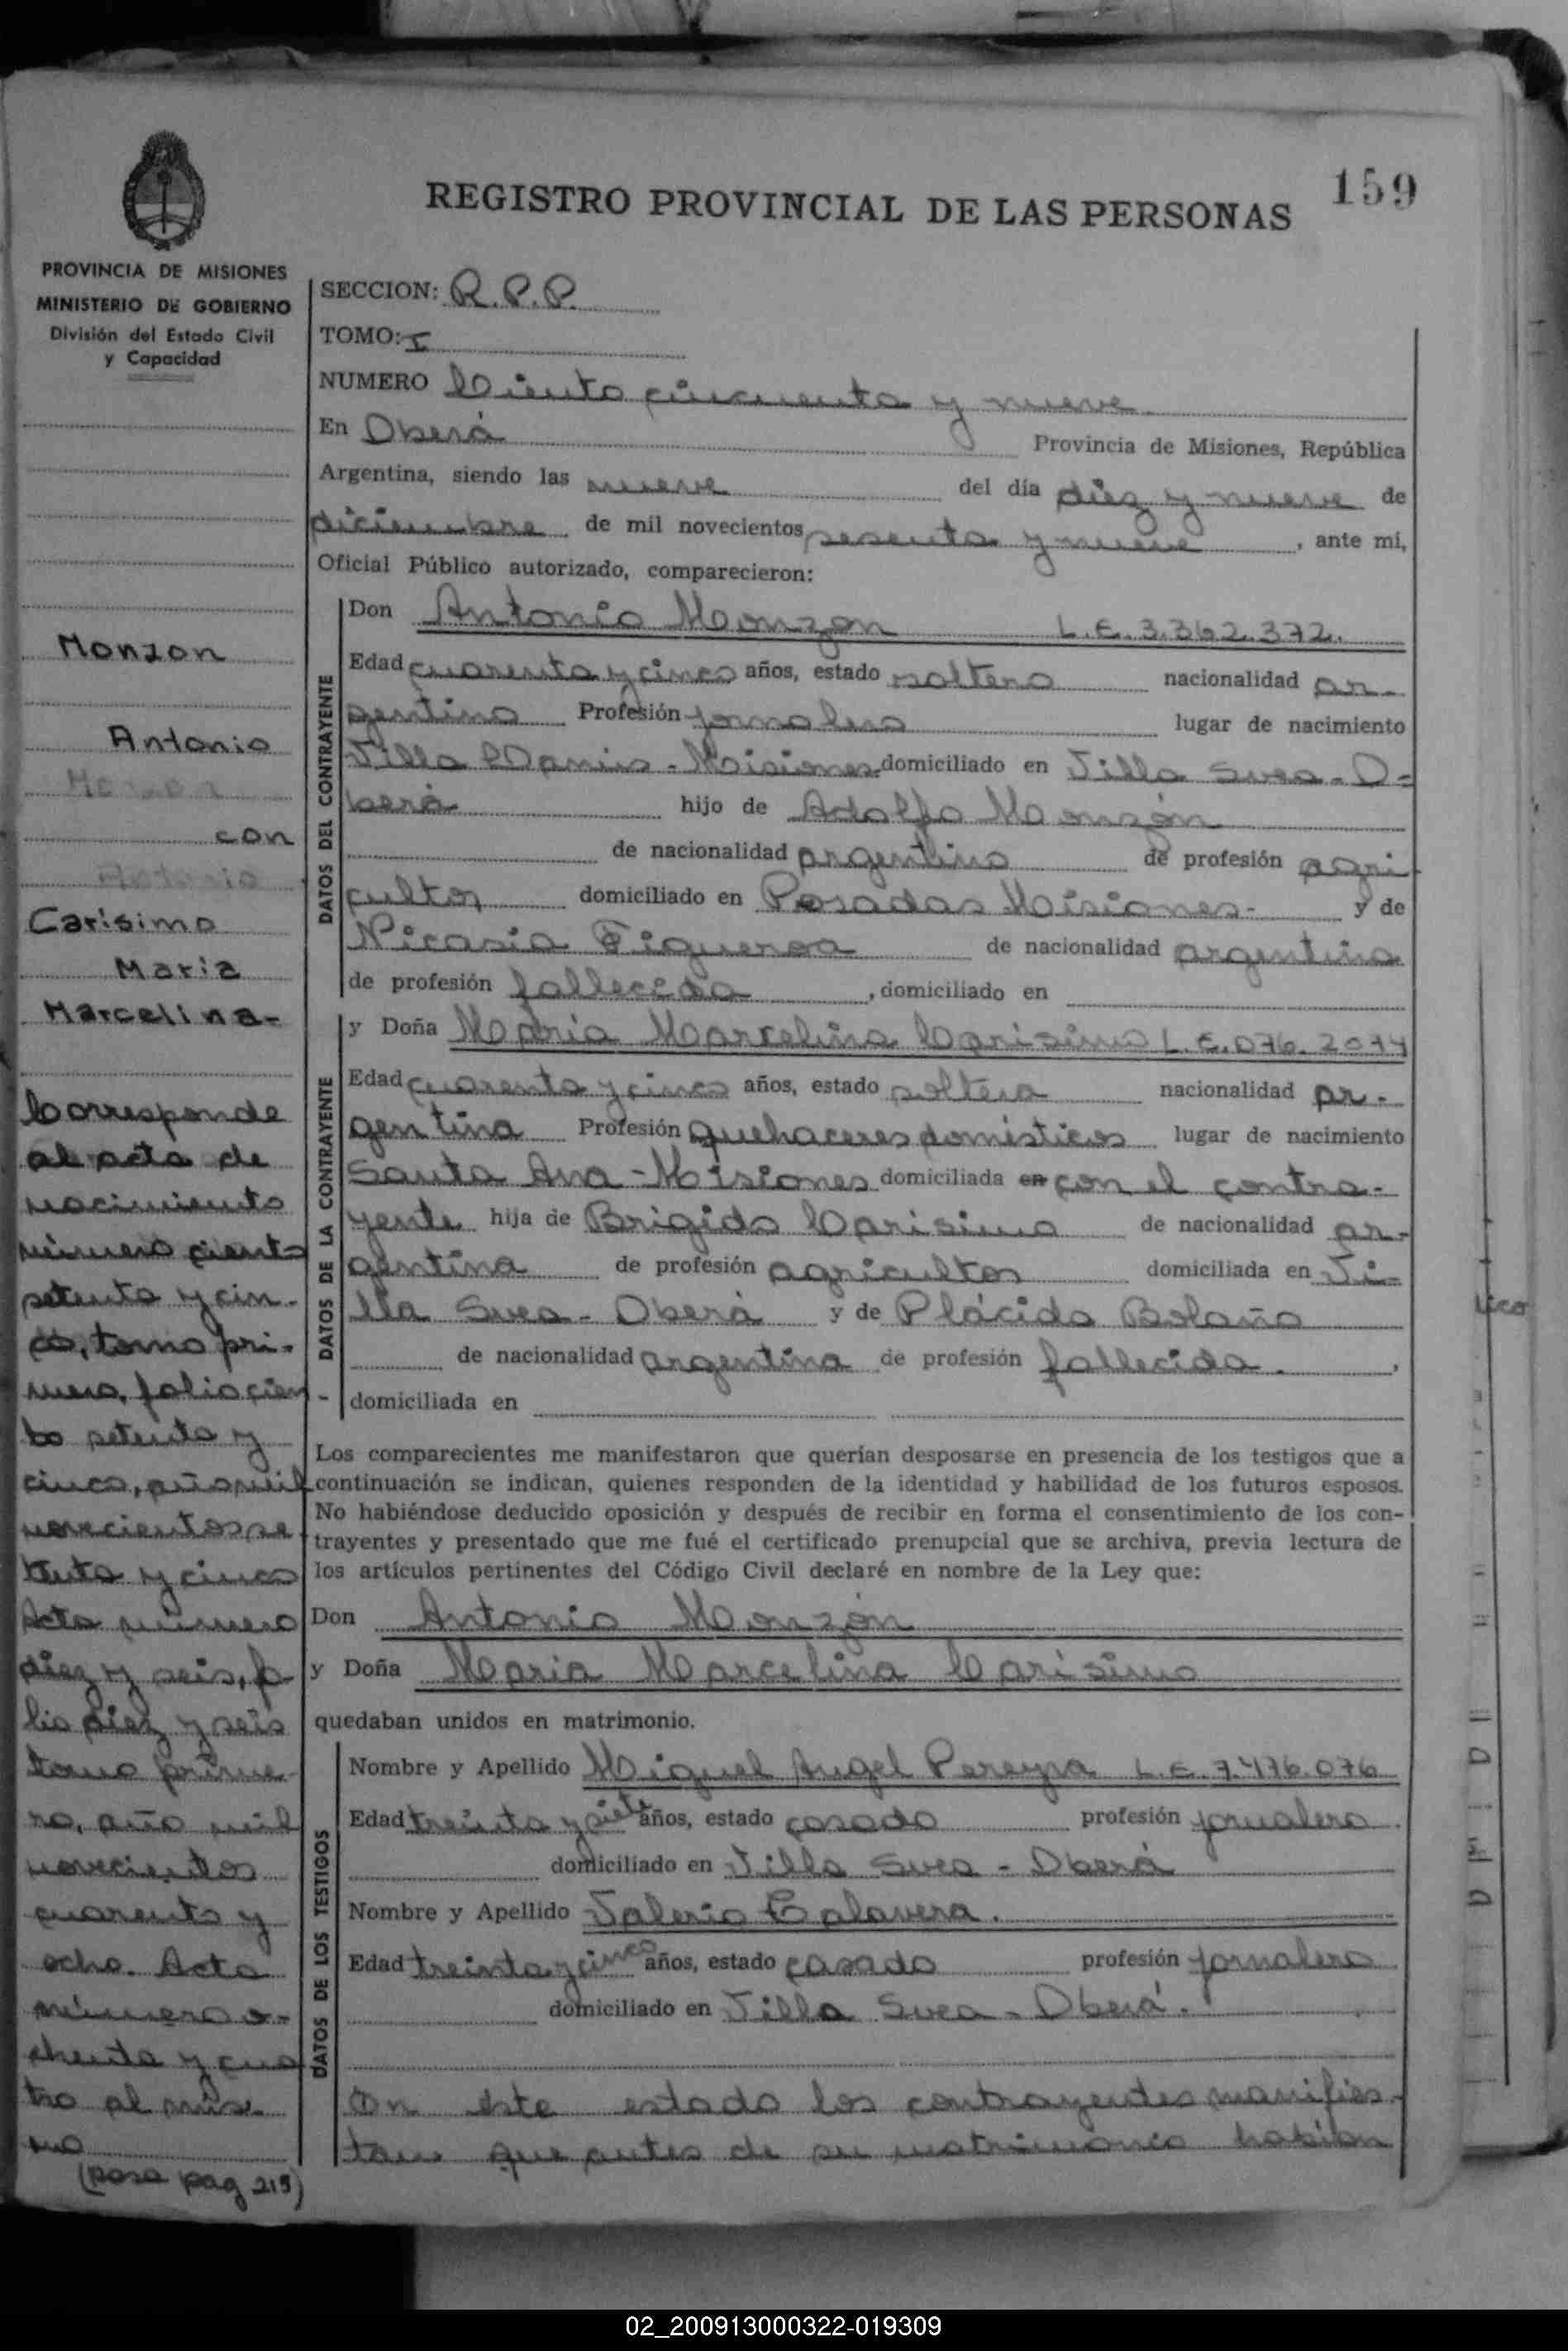 159
REGISTRO PROVINCIAL DE LAS PERSONAS
PROVINCIA DE MISIONES
MINISTERIO DE GOBIERNO
División del Estado Civil
y Capacidad
Monzon
Antonio
con
Carísimo
Maria
Marcelina-
Corresponde
al acta de
nacimiento
número ciento
setenta y cin-
co, tomo pri-
mero, folio cien-
to setenta y
cinco, año mil
novecientos se
tenta y cinco
Acta número
diez y seis, fo
lio diez y seis
tomo prime-
ro, año mil
novecientos
cuarenta y
ocho. Acta
número o-
chenta y cua
tro al mis
mo
(pasa pag 215)
SECCION: R.P.P.
TOMO: I
NUMERO Ciento cincuenta y nueve
En Oberá Provincia de Misiones, República
Argentina, siendo las nueve del día diez y nueve de
diciembre de mil novecientos sesenta y nueve, ante mí,
Oficial Público autorizado, comparecieron:
DATOS DEL CONTRAYENTE
Don Antonio Monzon L.E. 3.362.372.
Edad cuarenta y cinco años, estado soltero nacionalidad ar-
gentino Profesión jornalero lugar de nacimiento
Villa - Misiones domiciliado en Villa Svea - O-
berá hijo de Adolfo Monzón
de nacionalidad argentino de profesión agri
cultor domiciliado en Posadas Misiones- y de
Nicasia Figueroa de nacionalidad argentina
de profesión fallecida, domiciliado en
DATOS DE LA CONTRAYENTE
y Doña María Marcelina Carisimo L.E. 076. 2074
Edad cuarenta y cinco años, estado soltera nacionalidad ar-
gentina Profesión quehaceres domésticos lugar de nacimiento
Santa Ana - Misiones domiciliada en con el contra-
yente hija de Brigido Carisimo de nacionalidad ar-
gentina de profesión agricultor domiciliada en Vi-
lla Svea - Oberá y de Plácida Bolaño
de nacionalidad argentina de profesión fallecida.,
domiciliada en
Los comparecientes me manifestaron que querían desposarse en presencia de los testigos que a
continuación se indican, quienes responden de la identidad y habilidad de los futuros esposos.
No habiéndose deducido oposición y después de recibir en forma el consentimiento de los con-
trayentes y presentado que me fué el certificado prenupcial que se archiva, previa lectura de
los artículos pertinentes del Código Civil declaré en nombre de la Ley que:
Don Antonio Monzón
y Doña Maria Marcelina Carisimo
quedaban unidos en matrimonio.
DATOS DE LOS TESTIGOS
Nombre y Apellido Miguel Angel Pereyra L.E. 7.476.076
Edad treinta y siete años, estado casado profesión jornalero
domiciliado en Villa Svea - Oberá
Nombre y Apellido Valerio Talavera.
Edad treinta y cinco años, estado casado profesión jornalero
domiciliado en Villa Svea - Oberá.
En este estado los contrayentes manifies-
tan que antes de su matrimonio habían
02_200913000322-019309